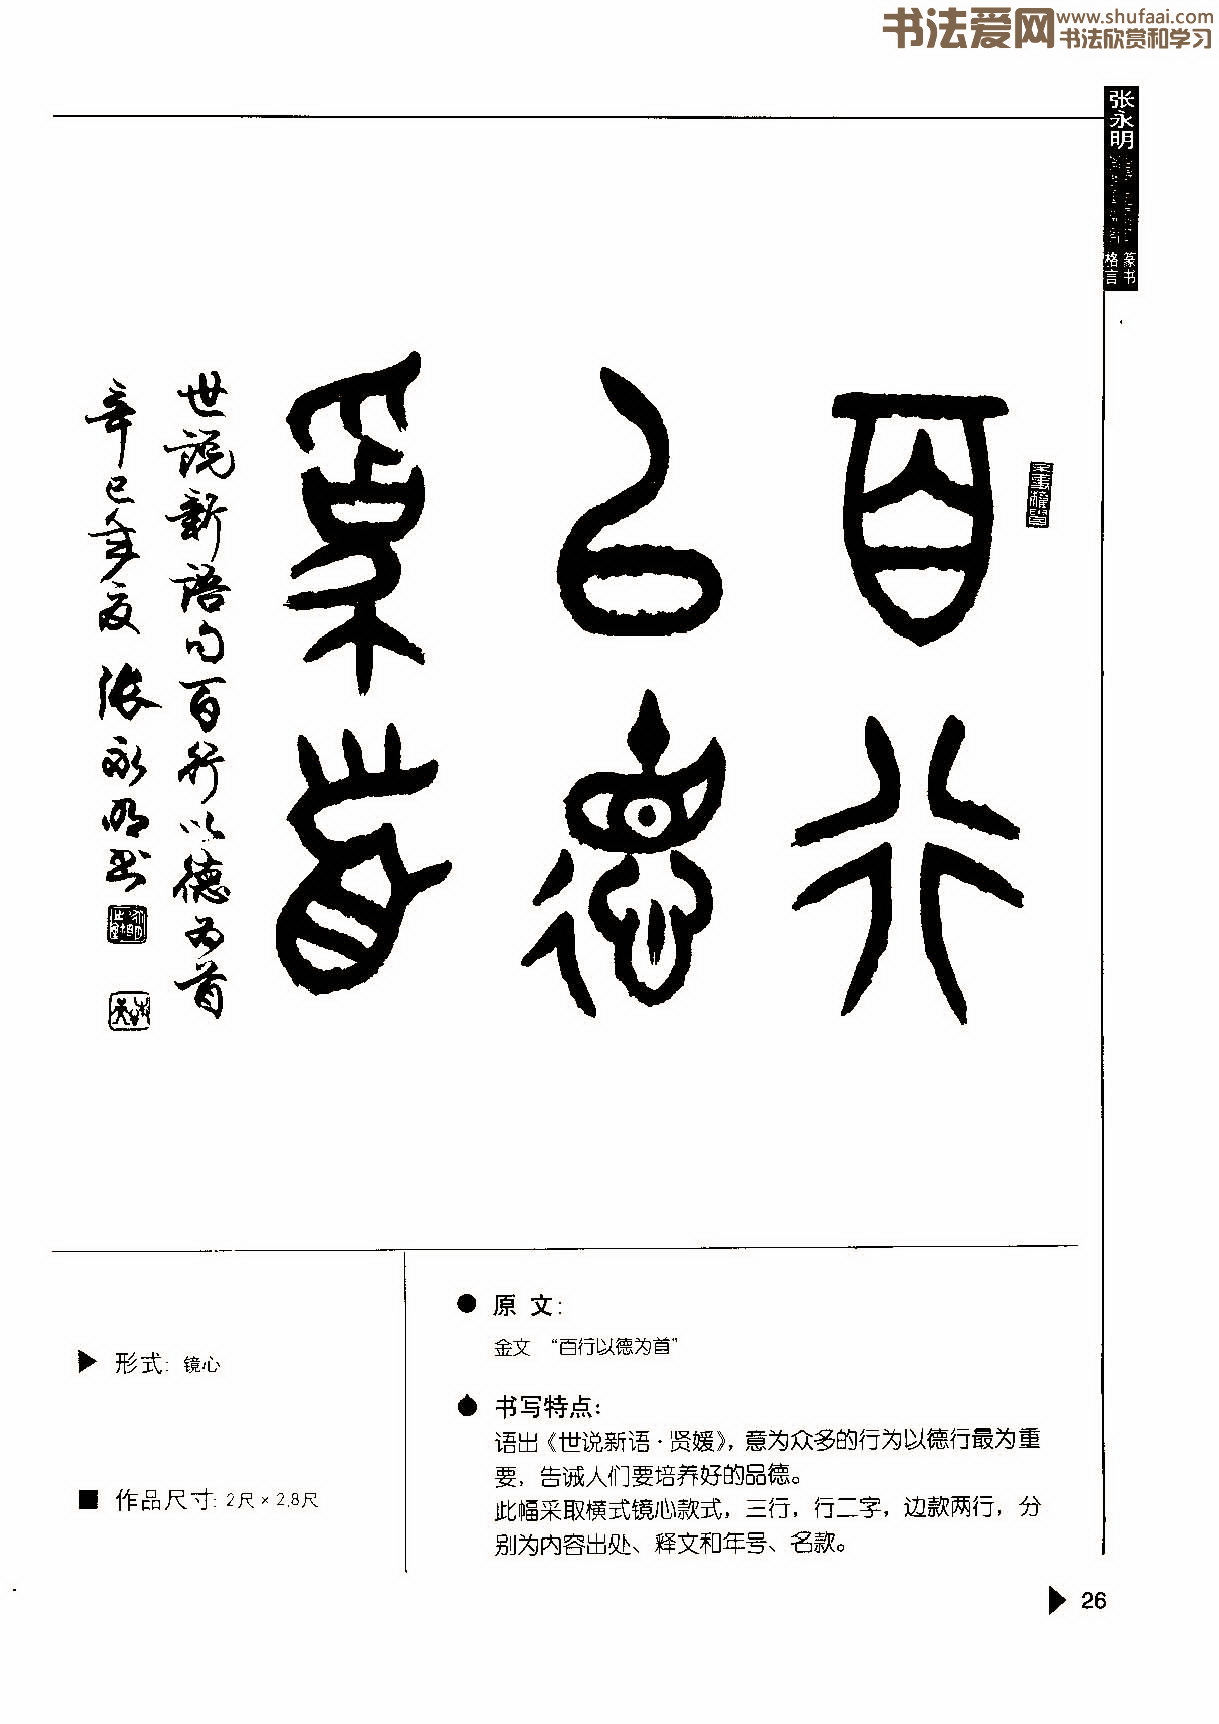 书法爱网 www.shufaai.com
书法欣赏和学习
张永明
篆书
格言
百行
㠯德
为首
世说新语句百行以德为首
辛巳年夏 张永明书
形式: 镜心
作品尺寸: 2尺×2.8尺
原 文:
金文 “百行以德为首”
书写特点:
语出《世说新语·贤媛》，意为众多的行为以德行最为重
要，告诫人们要培养好的品德。
此幅采取横式镜心款式，三行，行二字，边款两行，分
别为内容出处、释文和年号、名款。
26